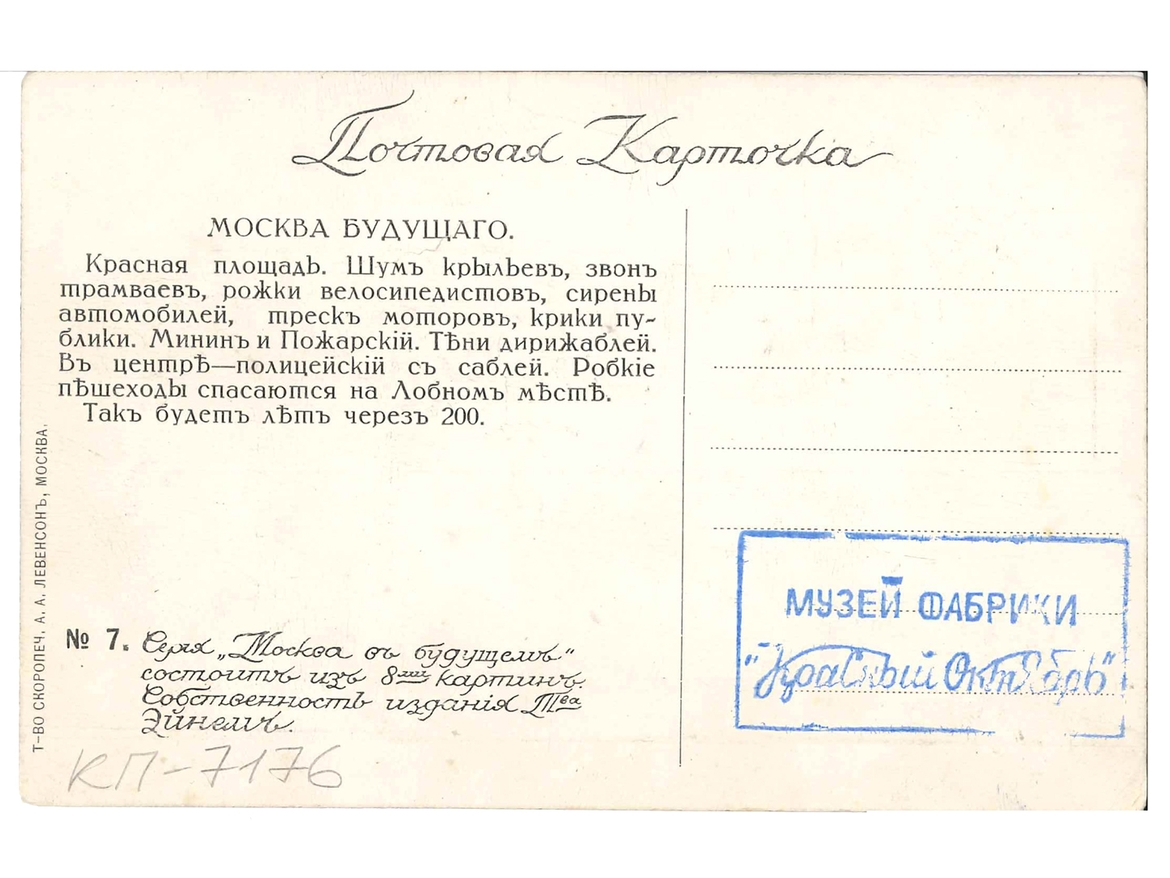 Почтовая Карточка
МОСКВА БУДУЩАГО.
Красная площадь. Шумъ крыльевъ, звонъ
трамваевъ, рожки велосипедистовъ, сирены
автомобилей, трескъ моторовъ, крики пу-
блики. Мининъ и Пожарскій. Тѣни дирижаблей.
Въ центрѣ—полицейскій съ саблей. Робкіе
пѣшеходы спасаются на Лобномъ мѣстѣ.
Такъ будетъ лѣтъ черезъ 200.
Т-ВО СКОРОПЕЧ. А. А. ЛЕВЕНСОНЪ, МОСКВА.
№ 7. Серія „Москва въ будущемъ“
состоитъ изъ 8ми картинъ.
Собственность изданія Тва
Эйнемъ.
КП-7176
МУЗЕЙ ФАБРИКИ
"Красный Октябрь"